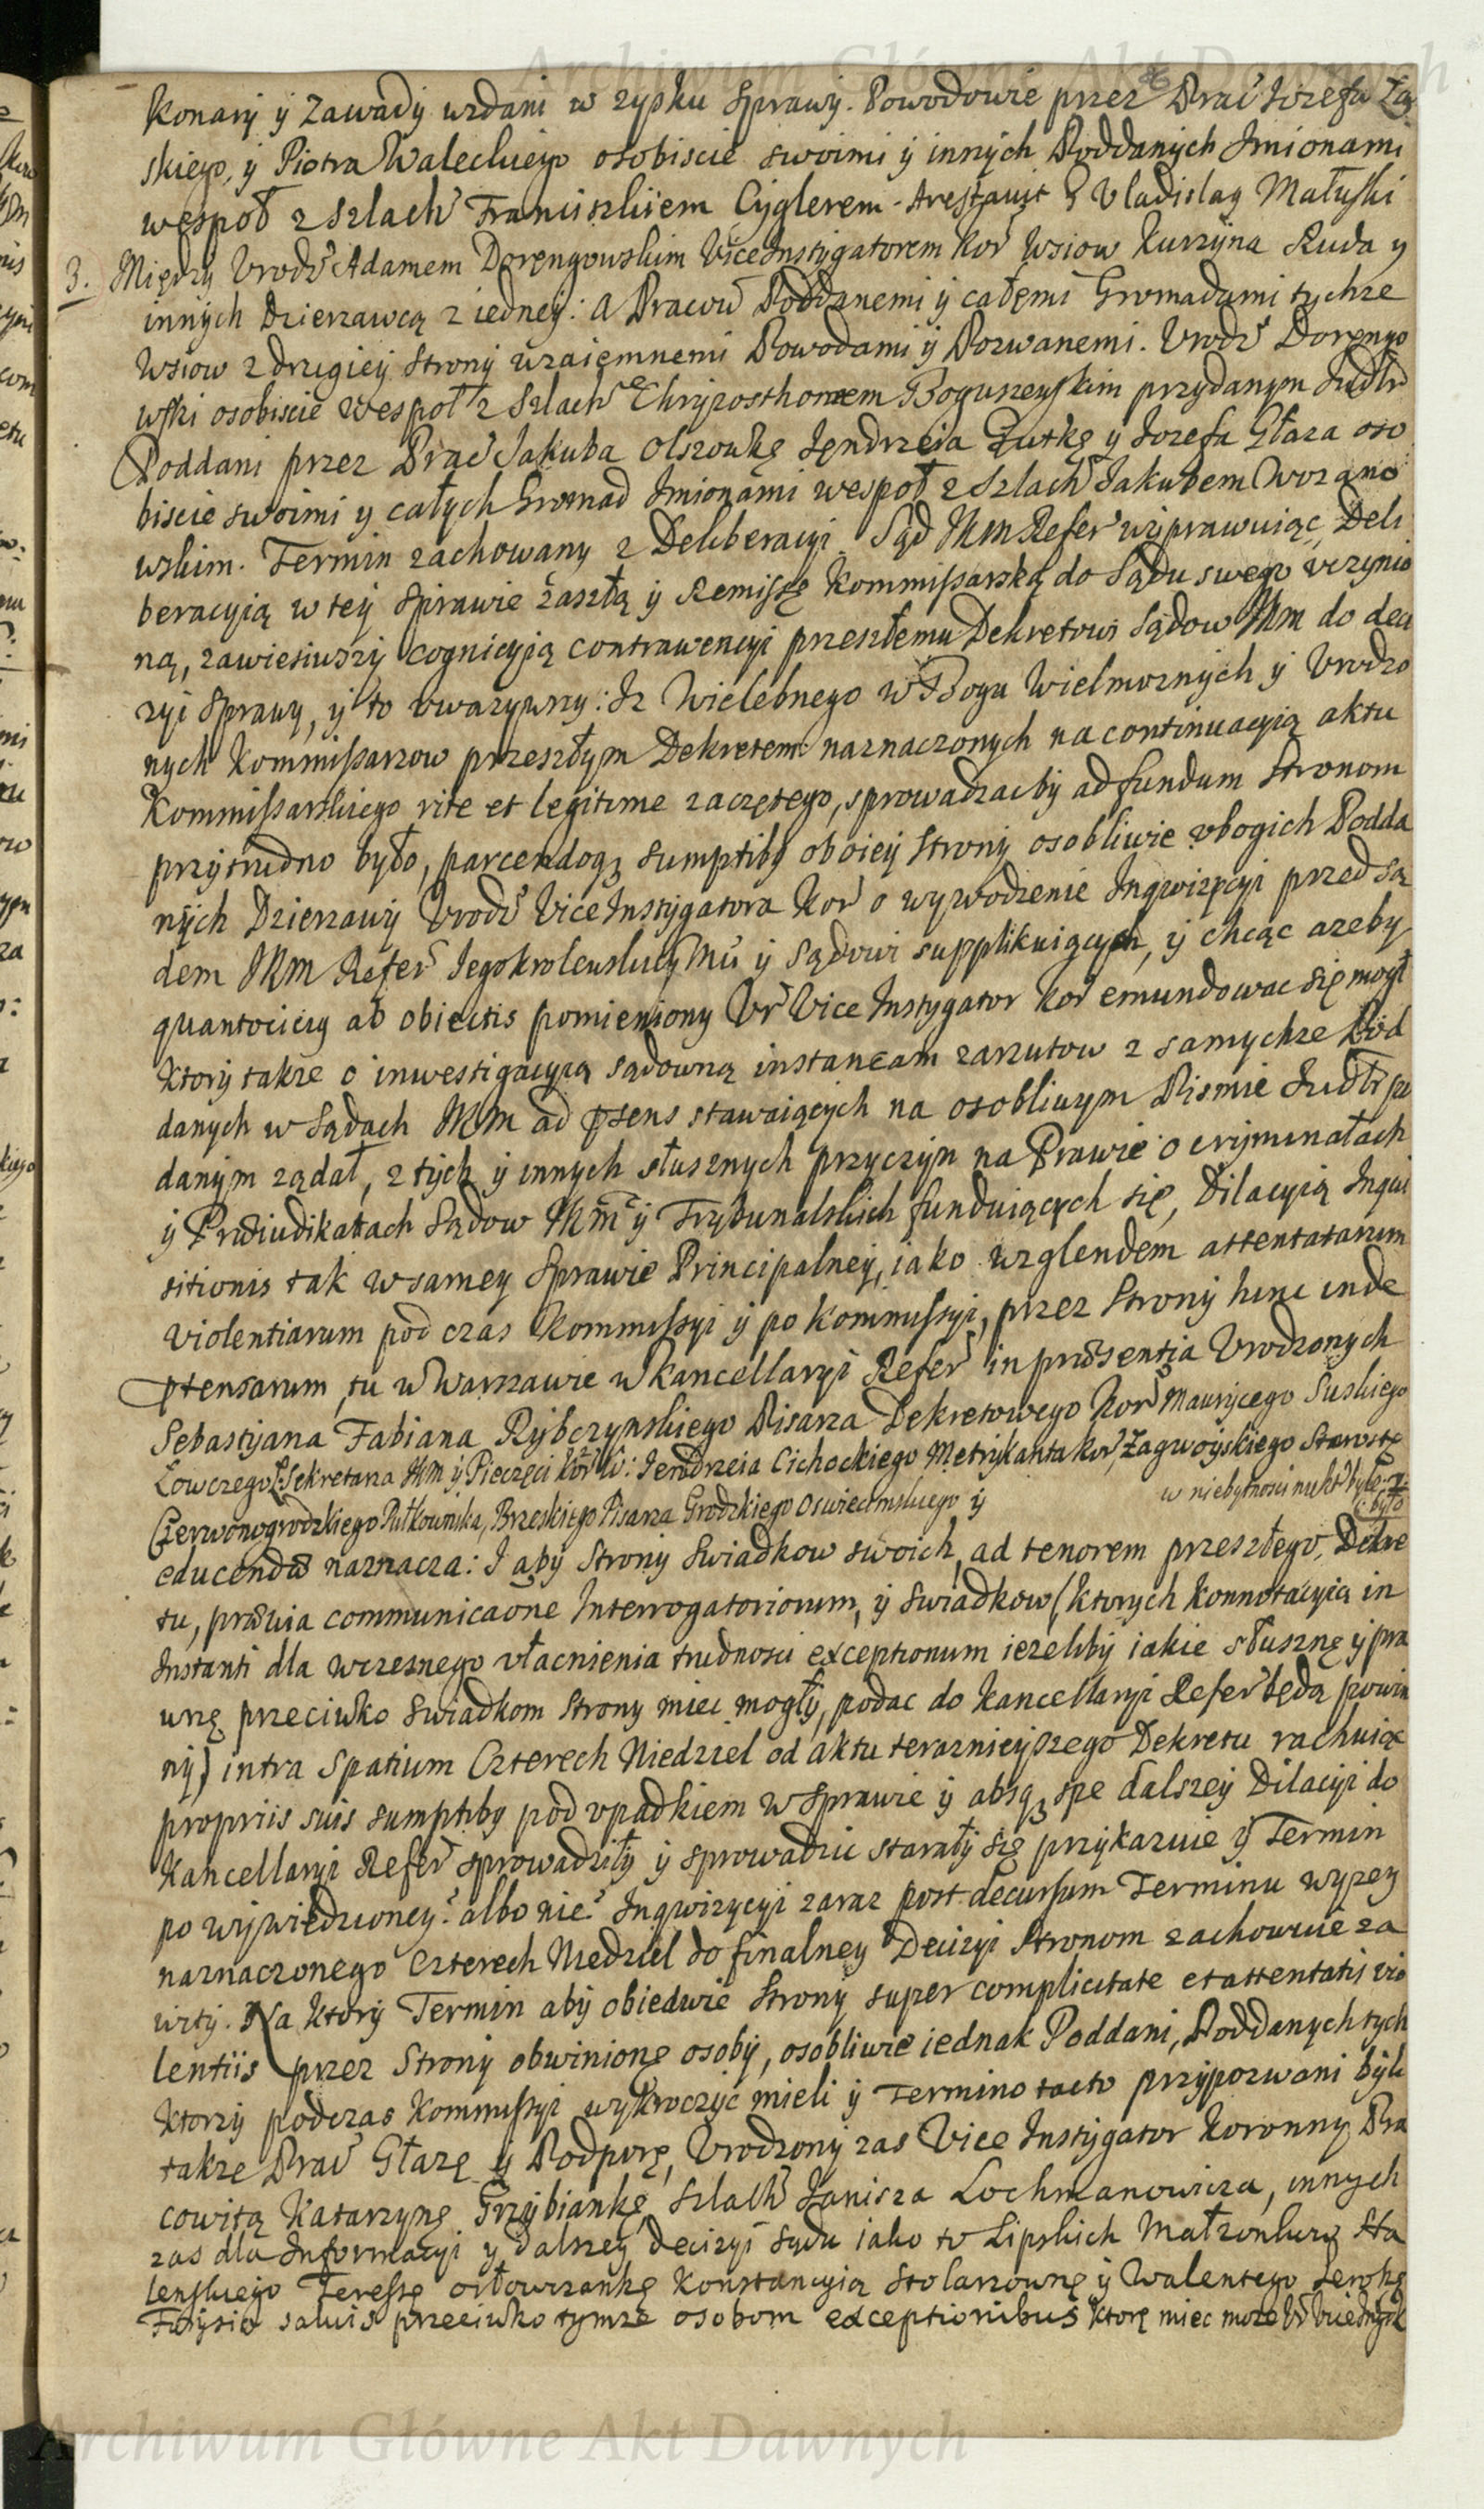 Archiwum Główne Akt Dawnych
86
Konary y Zawady wzdani w zysku Sprawy. Powodowie przez Prac Jozefa Za
skiego, y Piotra Waleckiego osobiscie swoimi y innych Poddanych Imionami
wespoł z Szlach Franciszkiem Cyglerem. Arestavit G Vladislaq Małuski
3. Między Vrodz Adamem Doręngowskim ViceInstygatorem Kor Wsiow Kurzyna Ruda y
innych Dzierzawcą z iedney: A Pracow Poddanemi y całęmi Gromadami tychze
Wsiow z drugiey Strony wzaiemnemi Powodami y Pozwanemi. Vrodz Doręngo
wski osobiscie wespoł z Szlach Chryzosthomem Boguszeyskim przydanym Judtr
Poddani przez Prac Jakuba Olszowkę Jędrzeia Zutkę y Jozefa Głaza oso
biscie swoimi y całych Gromad Imionami wespoł z Szlach Jakubem Wozano
wskim. Termin zachowany z Deliberacyi. Sąd JKM Refer wyprawuiąc Deli
beracyią w tey Sprawie zaszłą y Remissę Kommissarską do Sądu swego vczynio
ną, zawiesiwszy cognicyią contrawencyi przeszłemu Dekretowi Sądow JKM do decy
zyi Sprawy, y to vwazywszy: Iz Wielebnego w Bogu Wielmoznych y Vrodzo
nych Kommissarzow przeszłym Dekretem naznaczonych na continuacyią aktu
Kommissarskiego rite et legitime zaczętego, sprowadzacby ad fundum Stronom
przytrudno było, parcendoq; sumptiby oboiey Strony osobliwie vbogich Podda
nych Dzierzawy Vrodz ViceInstygatora Kor o wywodzenie Ingwizycyi przed Są
dem JKM Refer Jegokrolewskiey Mci y Sądowi supplikuiących, y chcąc azeby
quantocicy ab obiectis pomieniony Vr Vice Instygator Kor emundowac się mogł
Ktory takze o inwestigacyią sądowną instancam zarzutow z samychze Pod
danych w Sądach JKM ad ptens stawaiących na osobliwym Pismie Judtr po
danym ządał, z tych y innych słusznych przyczyn na Prawie o cryminałach
y Præiudikatach Sądow JKM y Trybunalskich funduiących się, Dilacyią Inqui
sitionis tak w samey Sprawie Principalney, iako wzglendem attentatarum
violentiarum pod czas Kommissyi y po Kommissyi, przez Strony hinc inde
ptensarum, tu w Warszawie w Kancellaryi Refer in præsentia Vrodzonych
Sebastyana Fabiana Rybczynskiego Pisarza Dekretowego Kor Maurycego Suskiego
Łowczego Sekretarza JKM y Pieczęci Kor W: Jendrzeia Cichockiego Metrykanta Kor, Zagwoyskiego Starostę
Czerwonogrodzkiego Pułkownika, Brzeskiego Pisarza Grodzkiego Oswiecimskiego y
w niebytnosci
educendæ naznacza: I aby Strony Swiadkow swoich, ad tenorem przeszłego Dekre
tu, prævia communicaone Interrogatoriorum, y Swiadkow (ktorych Konnotacyią in
Instanti dla wczesnego vłacnienia trudnosci exceptionum iezeliby iakie słusznę y pra
wnę przeciwko Swiadkom Strony miec mogły, podac do Kancellaryi Refer będą powin
ny) intra Spatium Czterech Niedziel od aktu teraznieyszego Dekretu rachuiąc
propriis suis sumptiby pod vpadkiem w Sprawie y absq; spe dalszey Dilacyi do
Kancellaryi Refer sprowadziły y sprowadzic starały się przykazuie y Termin
po wywiedzioney? albo nie? Ingwizycyi zaraz post decursum Terminu wyzey
naznaczonego Czterech Niedziel do finalney Decizyi Stronom zachowuie za
wity. Na ktory Termin aby obiedwie Strony super complicitate et attentatis vio
lentiis przez Strony obwinionę osoby, osobliwie iednak Poddani, Poddanych tych
ktorzy podczas Kommissyi wykroczyć mieli y Termino tacto przypozwani byli
takze Prac Głazę y Podporę, Vrodzony zas Vice Instygator Koronny Pra
cowitą Katarzynę Grzybiankę, Szlach Janisza Lochmanowicza, innych
zas dla Informacyi y dalszey Decizyi Sądu iako to Lipskich Małzonkow Sta
lenskiego Teressę orłowczankę Konstancyią Stolarzownę y Walentego
salvis przeciwko tymze osobom exceptionibus Ktorę miec moze Vr Vice Instyk
Archiwum Główne Akt Dawnych